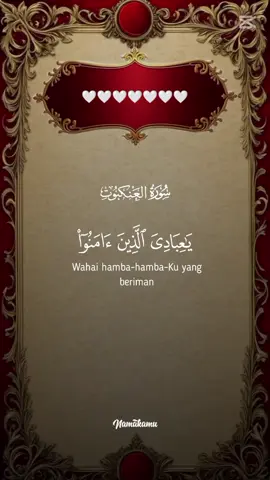 🤍🤍🤍🤍🤍🤍🤍
سُورَةُ العَنكَبُوتِ
يَٰعِبَادِىَ ٱلَّذِينَ ءَامَنُوٓا۟
Wahai hamba-hamba-Ku yang
beriman
Namakamu